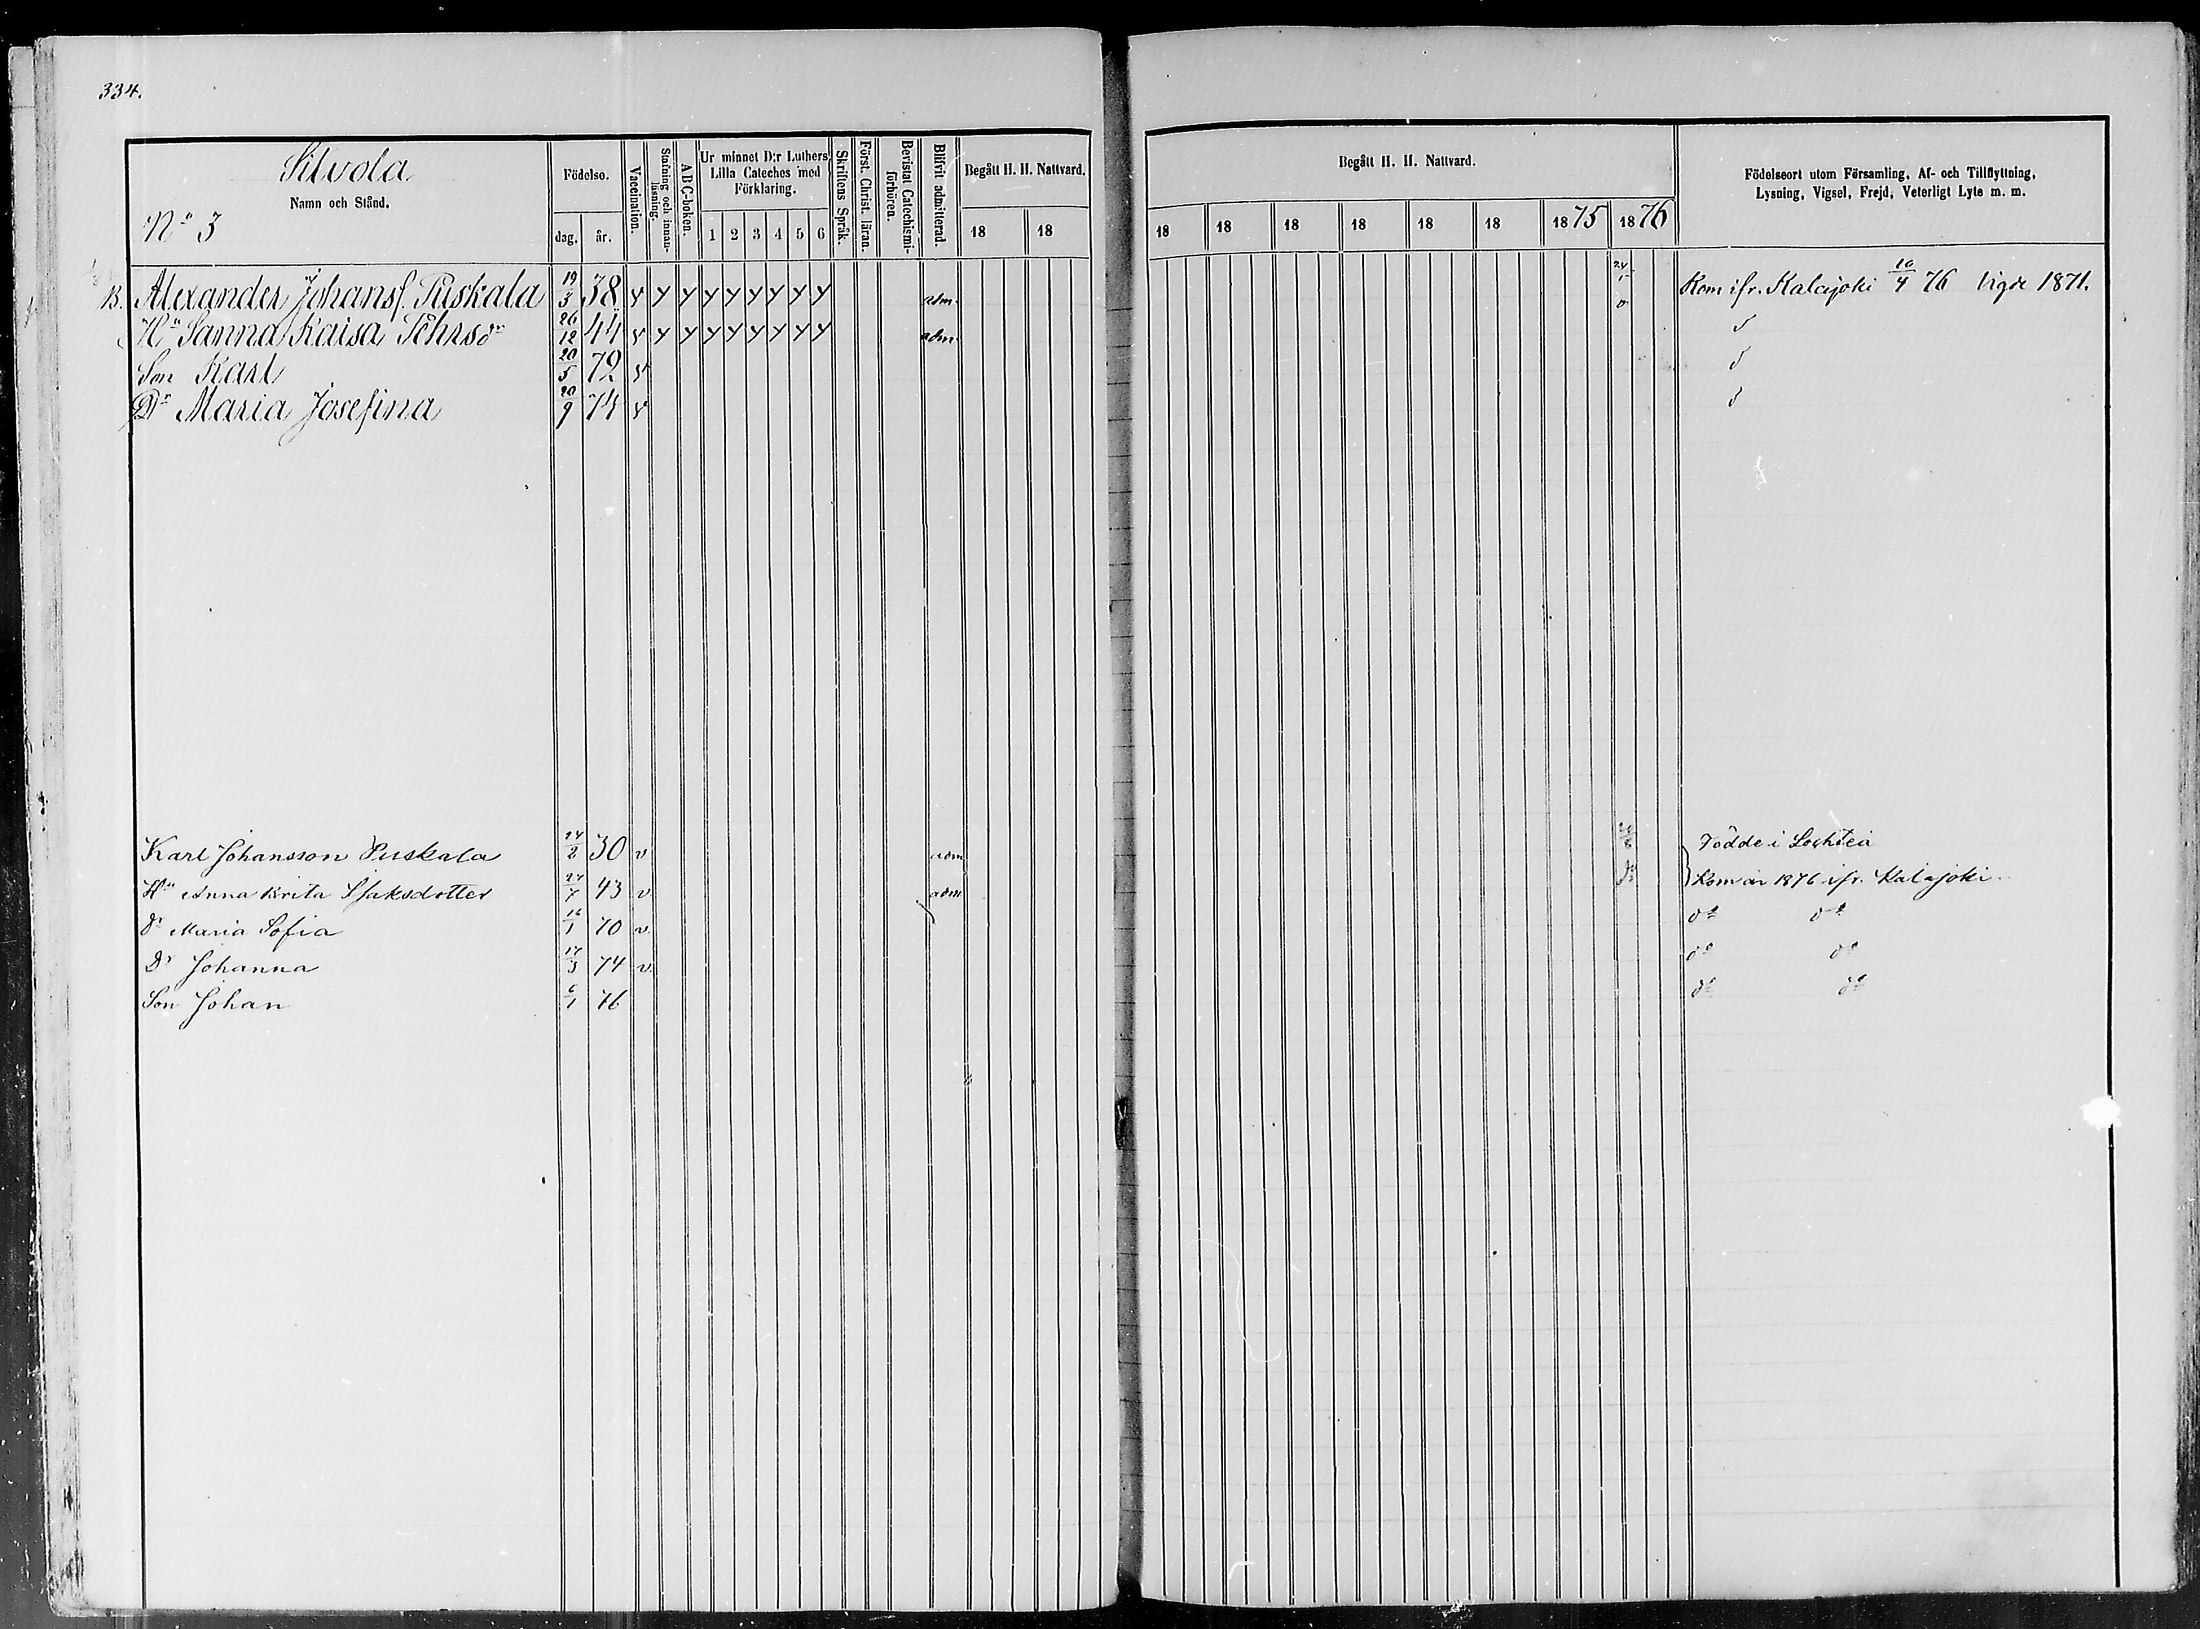 334.
Silvola
Namn och Stånd.
No 3
Födelse.
dag. år.
Vaccination.
Stafning och innanläsning.
ABC-boken.
Ur minnet D:r Luthers Lilla Cateches med Förklaring.
1 2 3 4 5 6
Skriftens Språk.
Först. Christ. läran.
Bevistat Catechismi-förhören.
Blifvit admitterad.
Begått H. H. Nattvard.
18 18
Begått H. H. Nattvard.
18 18 18 18 18 18 1875 1876
Födelseort utom Församling, Af- och Tillflyttning,
Lysning, Vigsel, Frejd, Veterligt Lyte m. m.
B. Alexander Johanss. Puskala 19/3 38 adm. 24/ Kom ifr. Kalajoki 10/4 76 Vigde 1871.
Hu Sanna Kaisa 26/12 44 adm.
Son Karl 20/5 72
Dr Maria Josefina 20/9 74
Karl Johansson Puskala 24/2 30 v adm Födde i Lochteå
Hu Anna Brita Isaksdotter 24/7 43 v adm Kom år 1876 ifr. Kalajoki
Dr Maria Sofia 16/1 70 v do do
Dr Johanna 17/3 74 v do do
Son Johan 6/1 76 do do